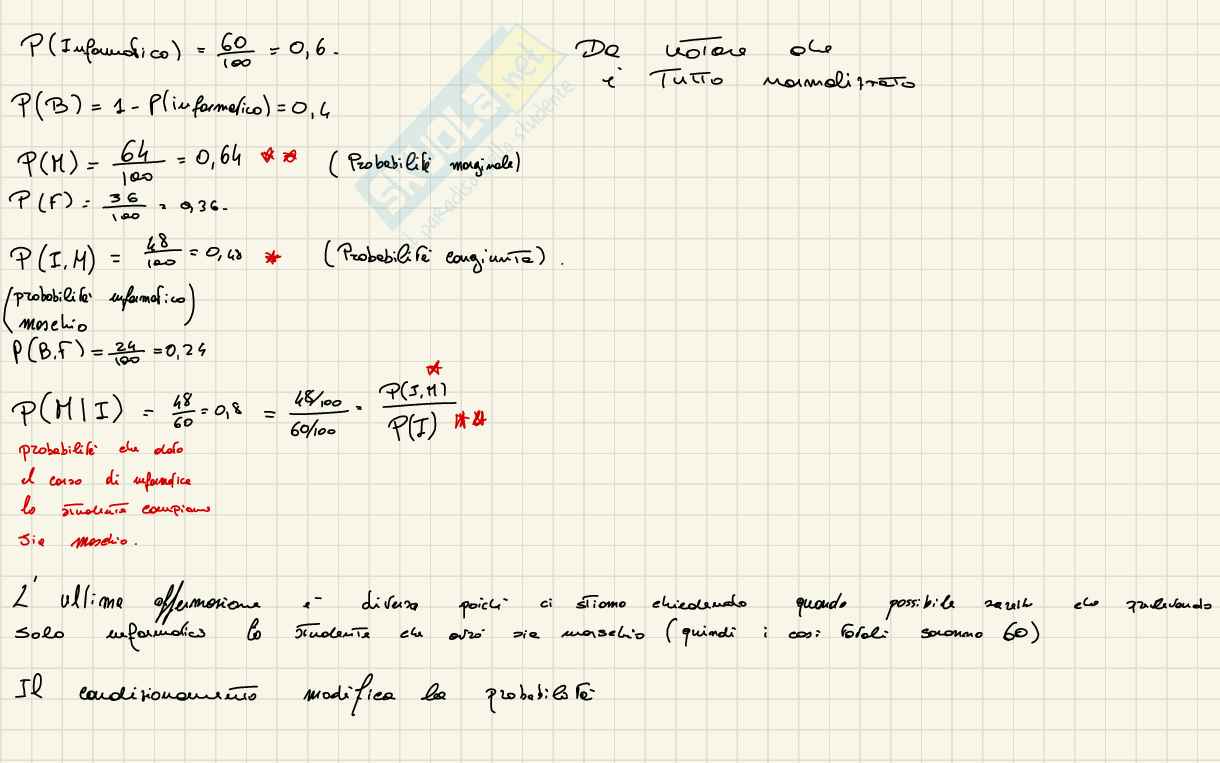 P(Informatico) = 60/100 = 0,6.
Da notare che
è TUTTO normalizzato
P(B) = 1 - P(informatico) = 0,4
P(M) = 64/100 = 0,64 ** (Probabilità marginale)
P(F) = 36/100 = 0,36.
P(I,M) = 48/100 = 0,48 * (Probabilità congiunta).
(probabilità informatico
maschio)
P(B,F) = 24/100 = 0,24
P(M|I) = 48/60 = 0,8 = 48/100 / 60/100 = P(I,M) * / P(I) **
probabilità che dato
il corso di informatica
lo studente campione
sia maschio.
L'ultima affermazione è diversa poiché ci stiamo chiedendo quando possibile che prelevando
solo informatico lo studente che sia maschio (quindi i casi totali saranno 60)
Il condizionamento modifica la probabilità
SKUOLA.net
il paradiso dello studente